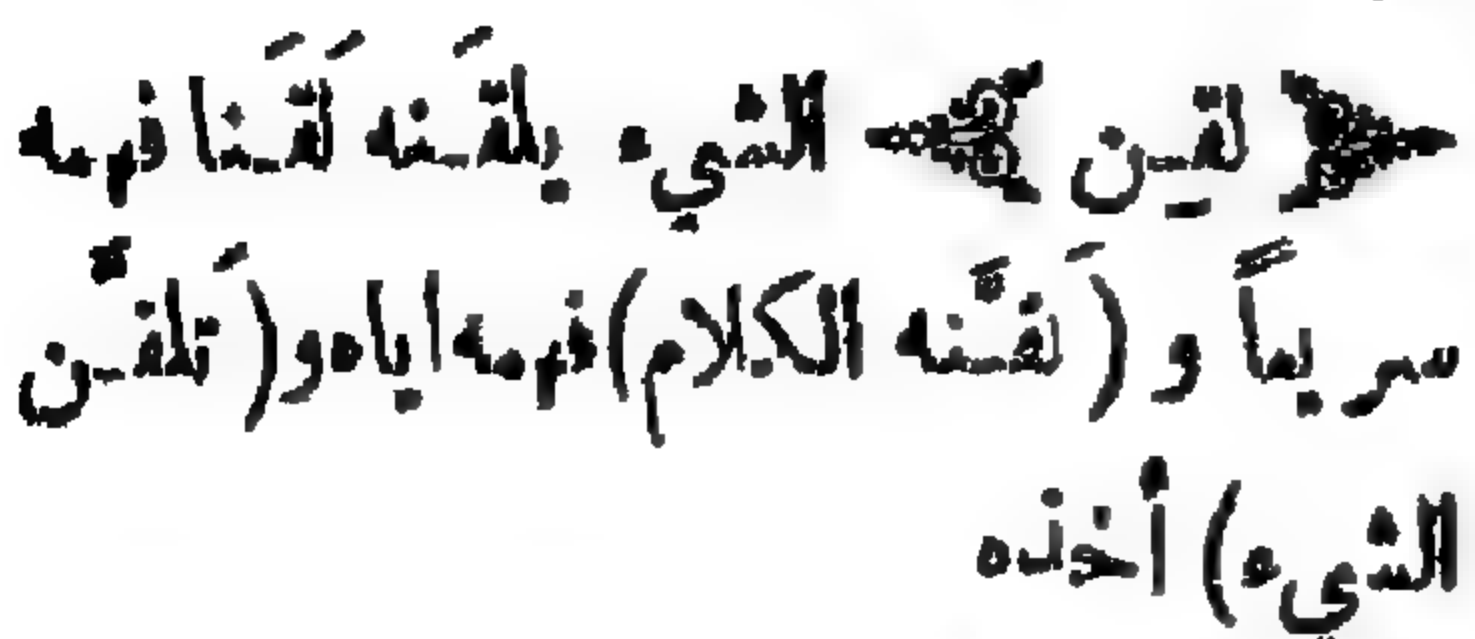 ﴿ لقِن ﴾ الشيء يلقَنه لَقَنَا فهمه
سريعاً و ( لقَّنه الكلام ) فهمه اياه و ( تَلقَّن
الشيء ) أخذه